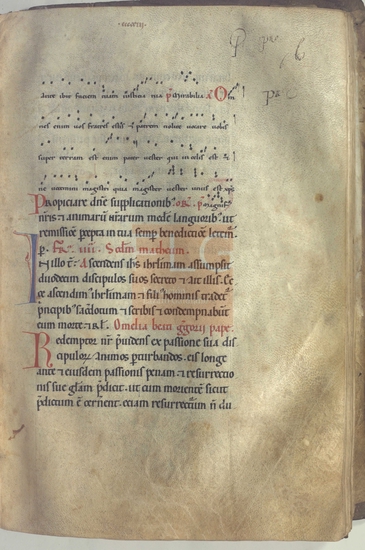 nos enim vos fratres estis & patrem nolite vocare vobis
super terram est enim pater vester qui in celis est
ne vocemini magistri quia magister vester unus est xp̄c
Propiciare dn̄e supplicationib;
nr̄is & animarū nr̄arum medere languorib; ut
remissione p̄cepta in tua semp̄ benedictione letem̄.
Scd̄m matheum.
In illo t̄. Ascendens ih̄s ih̄rlimam assumpsit
duodecim discipulos suos secreto & ait illis. Ec
ce ascendim; ih̄rlimam & fili; hominis tradet̄
principib; sac̄dotum & scribis & condempnabunt
eum morte & rl̄. Omelia beati gḡorii pape.
Redemptor nr̄ p̄uidens ex passione sua dis
cipuloꝝ animos perturbandos. eis longe
ante & eiusdem passionis penam. & resurrectio
nis sue glām p̄dicit. ut cum morientē sicut
p̄dictum ē cernent. etiam resurrecturū n̄ du